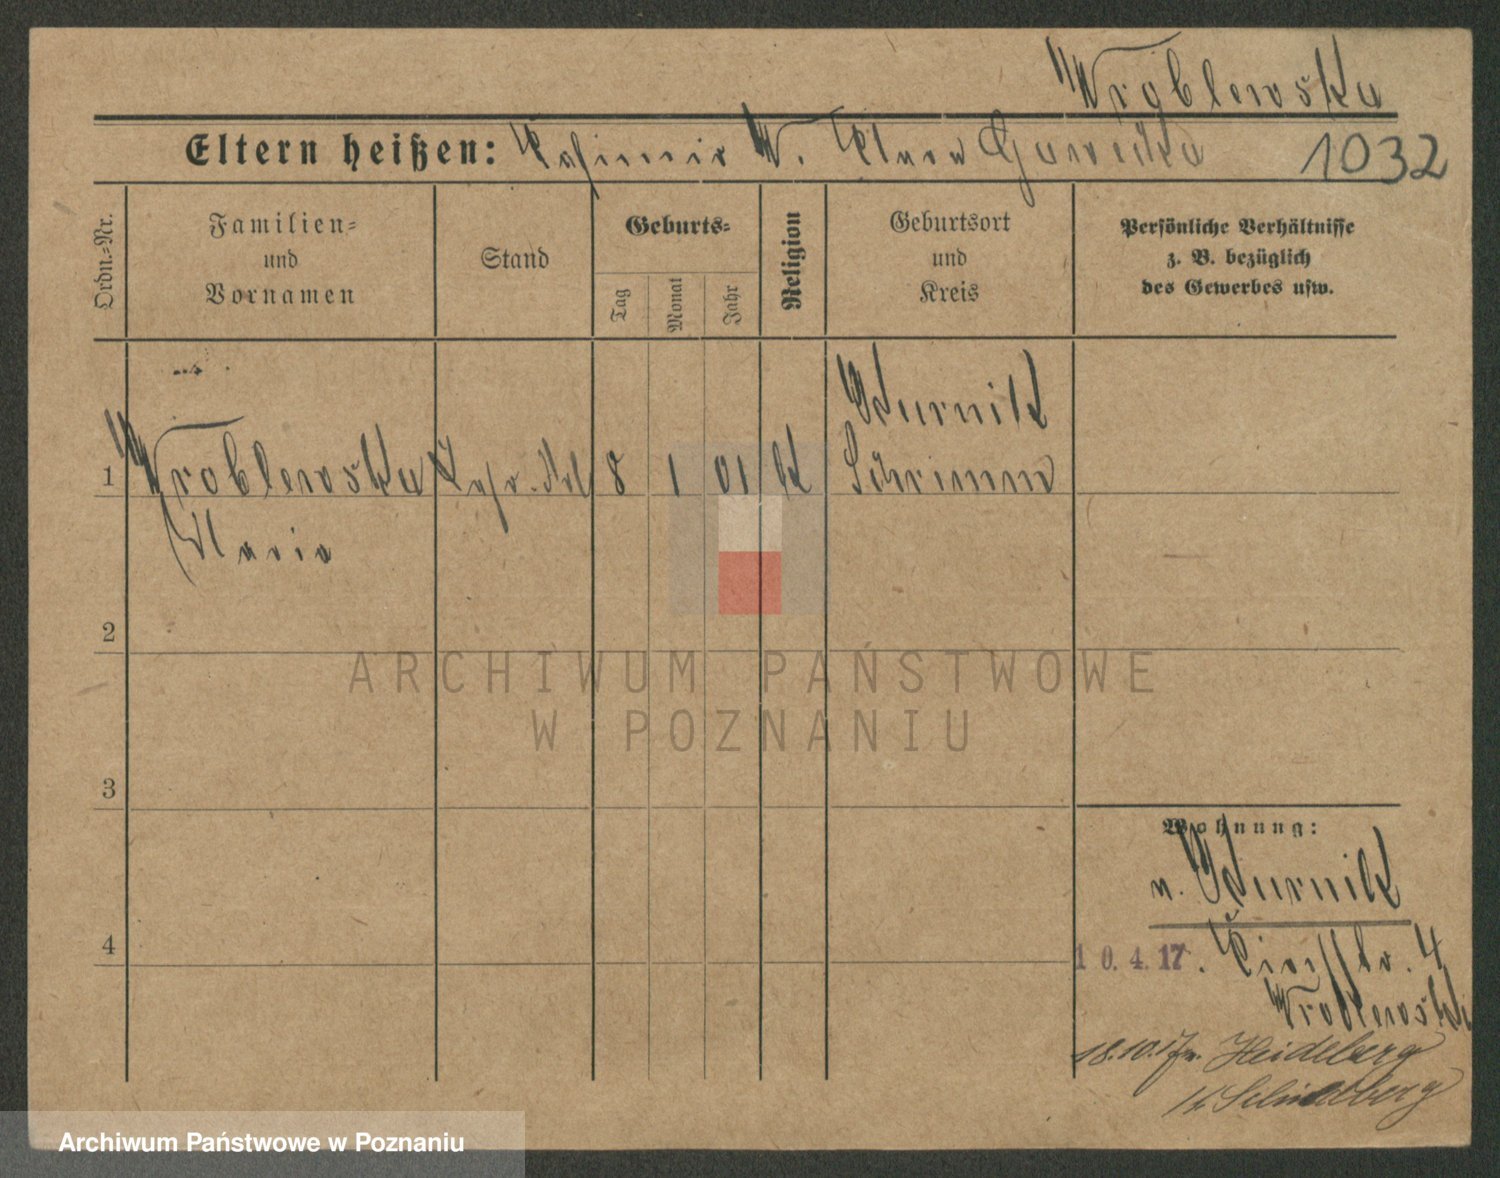 Wroblewska
Eltern heißen: Kasimir W. Clara Gawecka 1032
Ordn.-Nr.
Familien-
und
Vornamen
Stand
Geburts-
Tag
Monat
Jahr
Religion
Geburtsort
und
Kreis
Persönliche Verhältnisse
z. B. bezüglich
des Gewerbes usw.
Kurnik
1 Wroblewska 8 1 01 k Schrimm
Maria
2
ARCHIWUM PAŃSTWOWE
W POZNANIU
3
Wohnung:
n. Kurnik
4
10.4.17. 4
Wroblewski
18.10.17 n. Heidelberg
Kr. Schildberg
Archiwum Państwowe w Poznaniu